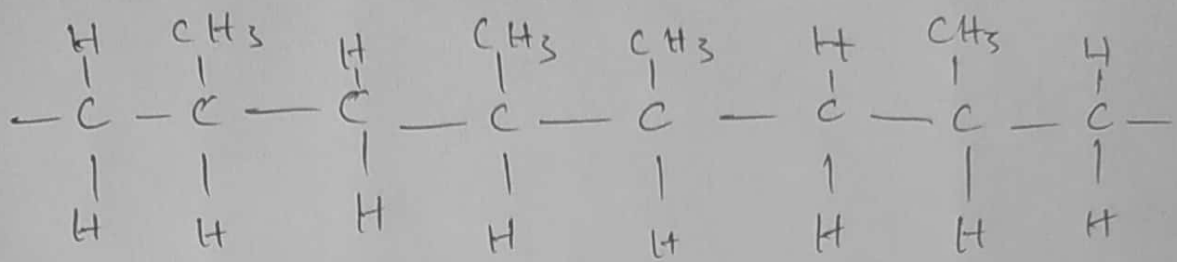 H CH3 H CH3 CH3 H CH3 H
— C — C — C — C — C — C — C — C —
H H H H H H H H